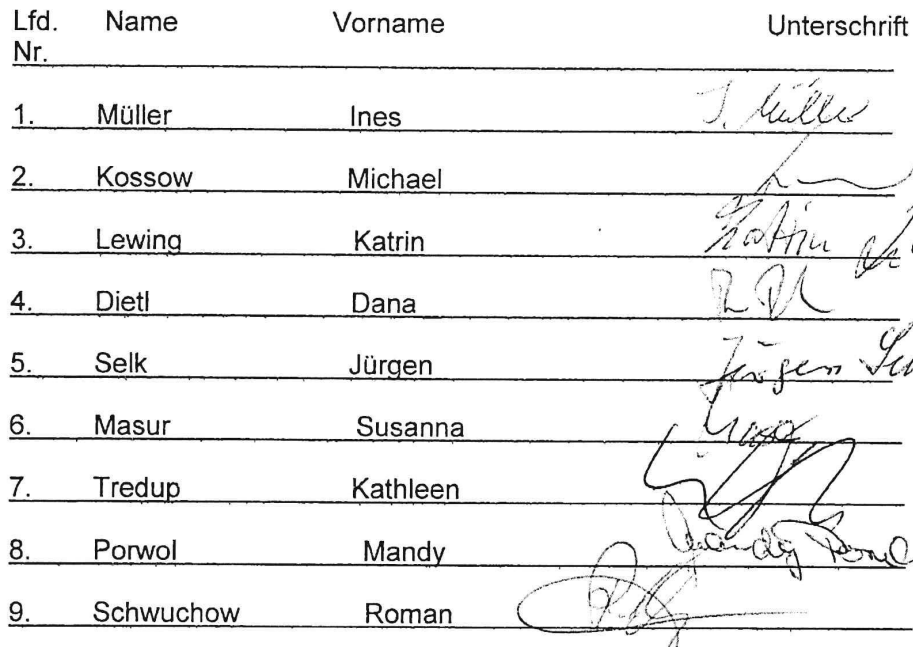 Lfd. Name Vorname Unterschrift
Nr.
1. Müller Ines I. Müller
2. Kossow Michael
3. Lewing Katrin Katrin
4. Dietl Dana
5. Selk Jürgen Jürgen
6. Masur Susanna
7. Tredup Kathleen
8. Porwol Mandy Mandy
9. Schwuchow Roman